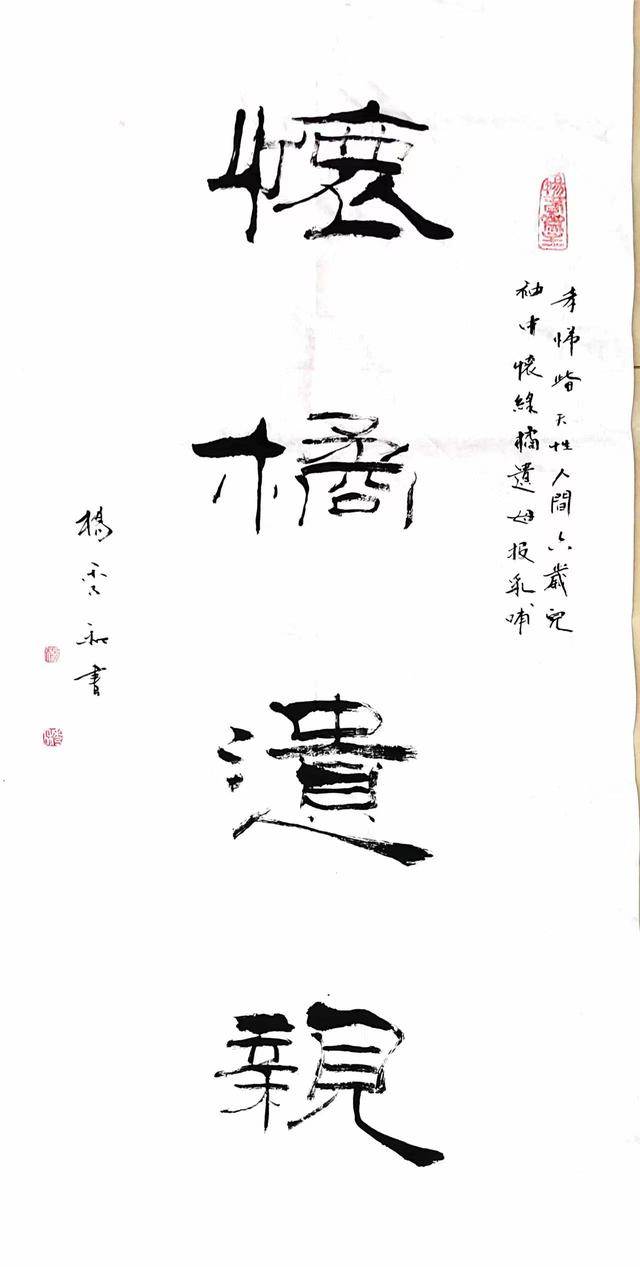 孝悌皆天性人間六歲兒
袖中懷綠橘遺母報乳哺
懷橘遺親
楊雲和書